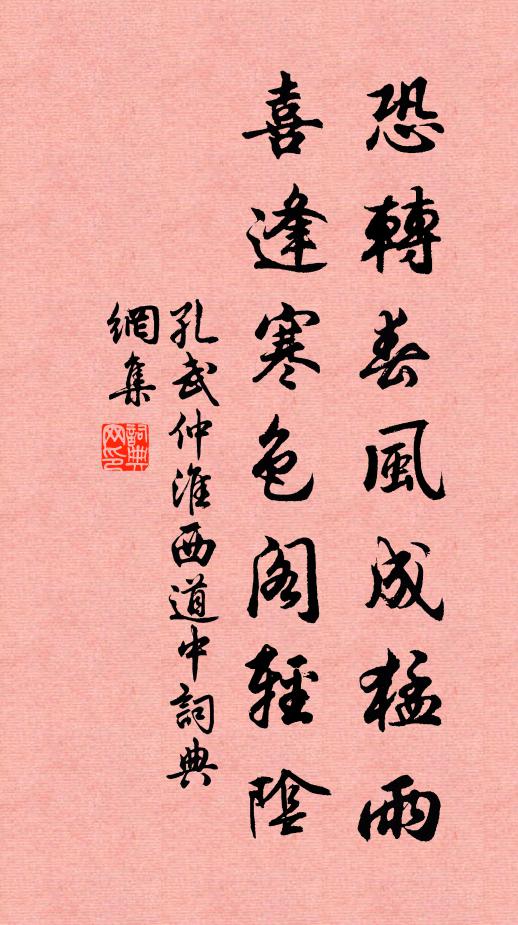 恐轉春風成猛雨
喜逢寒色阁輕陰
孔武仲淮西道中詞典
網集
詞典網印